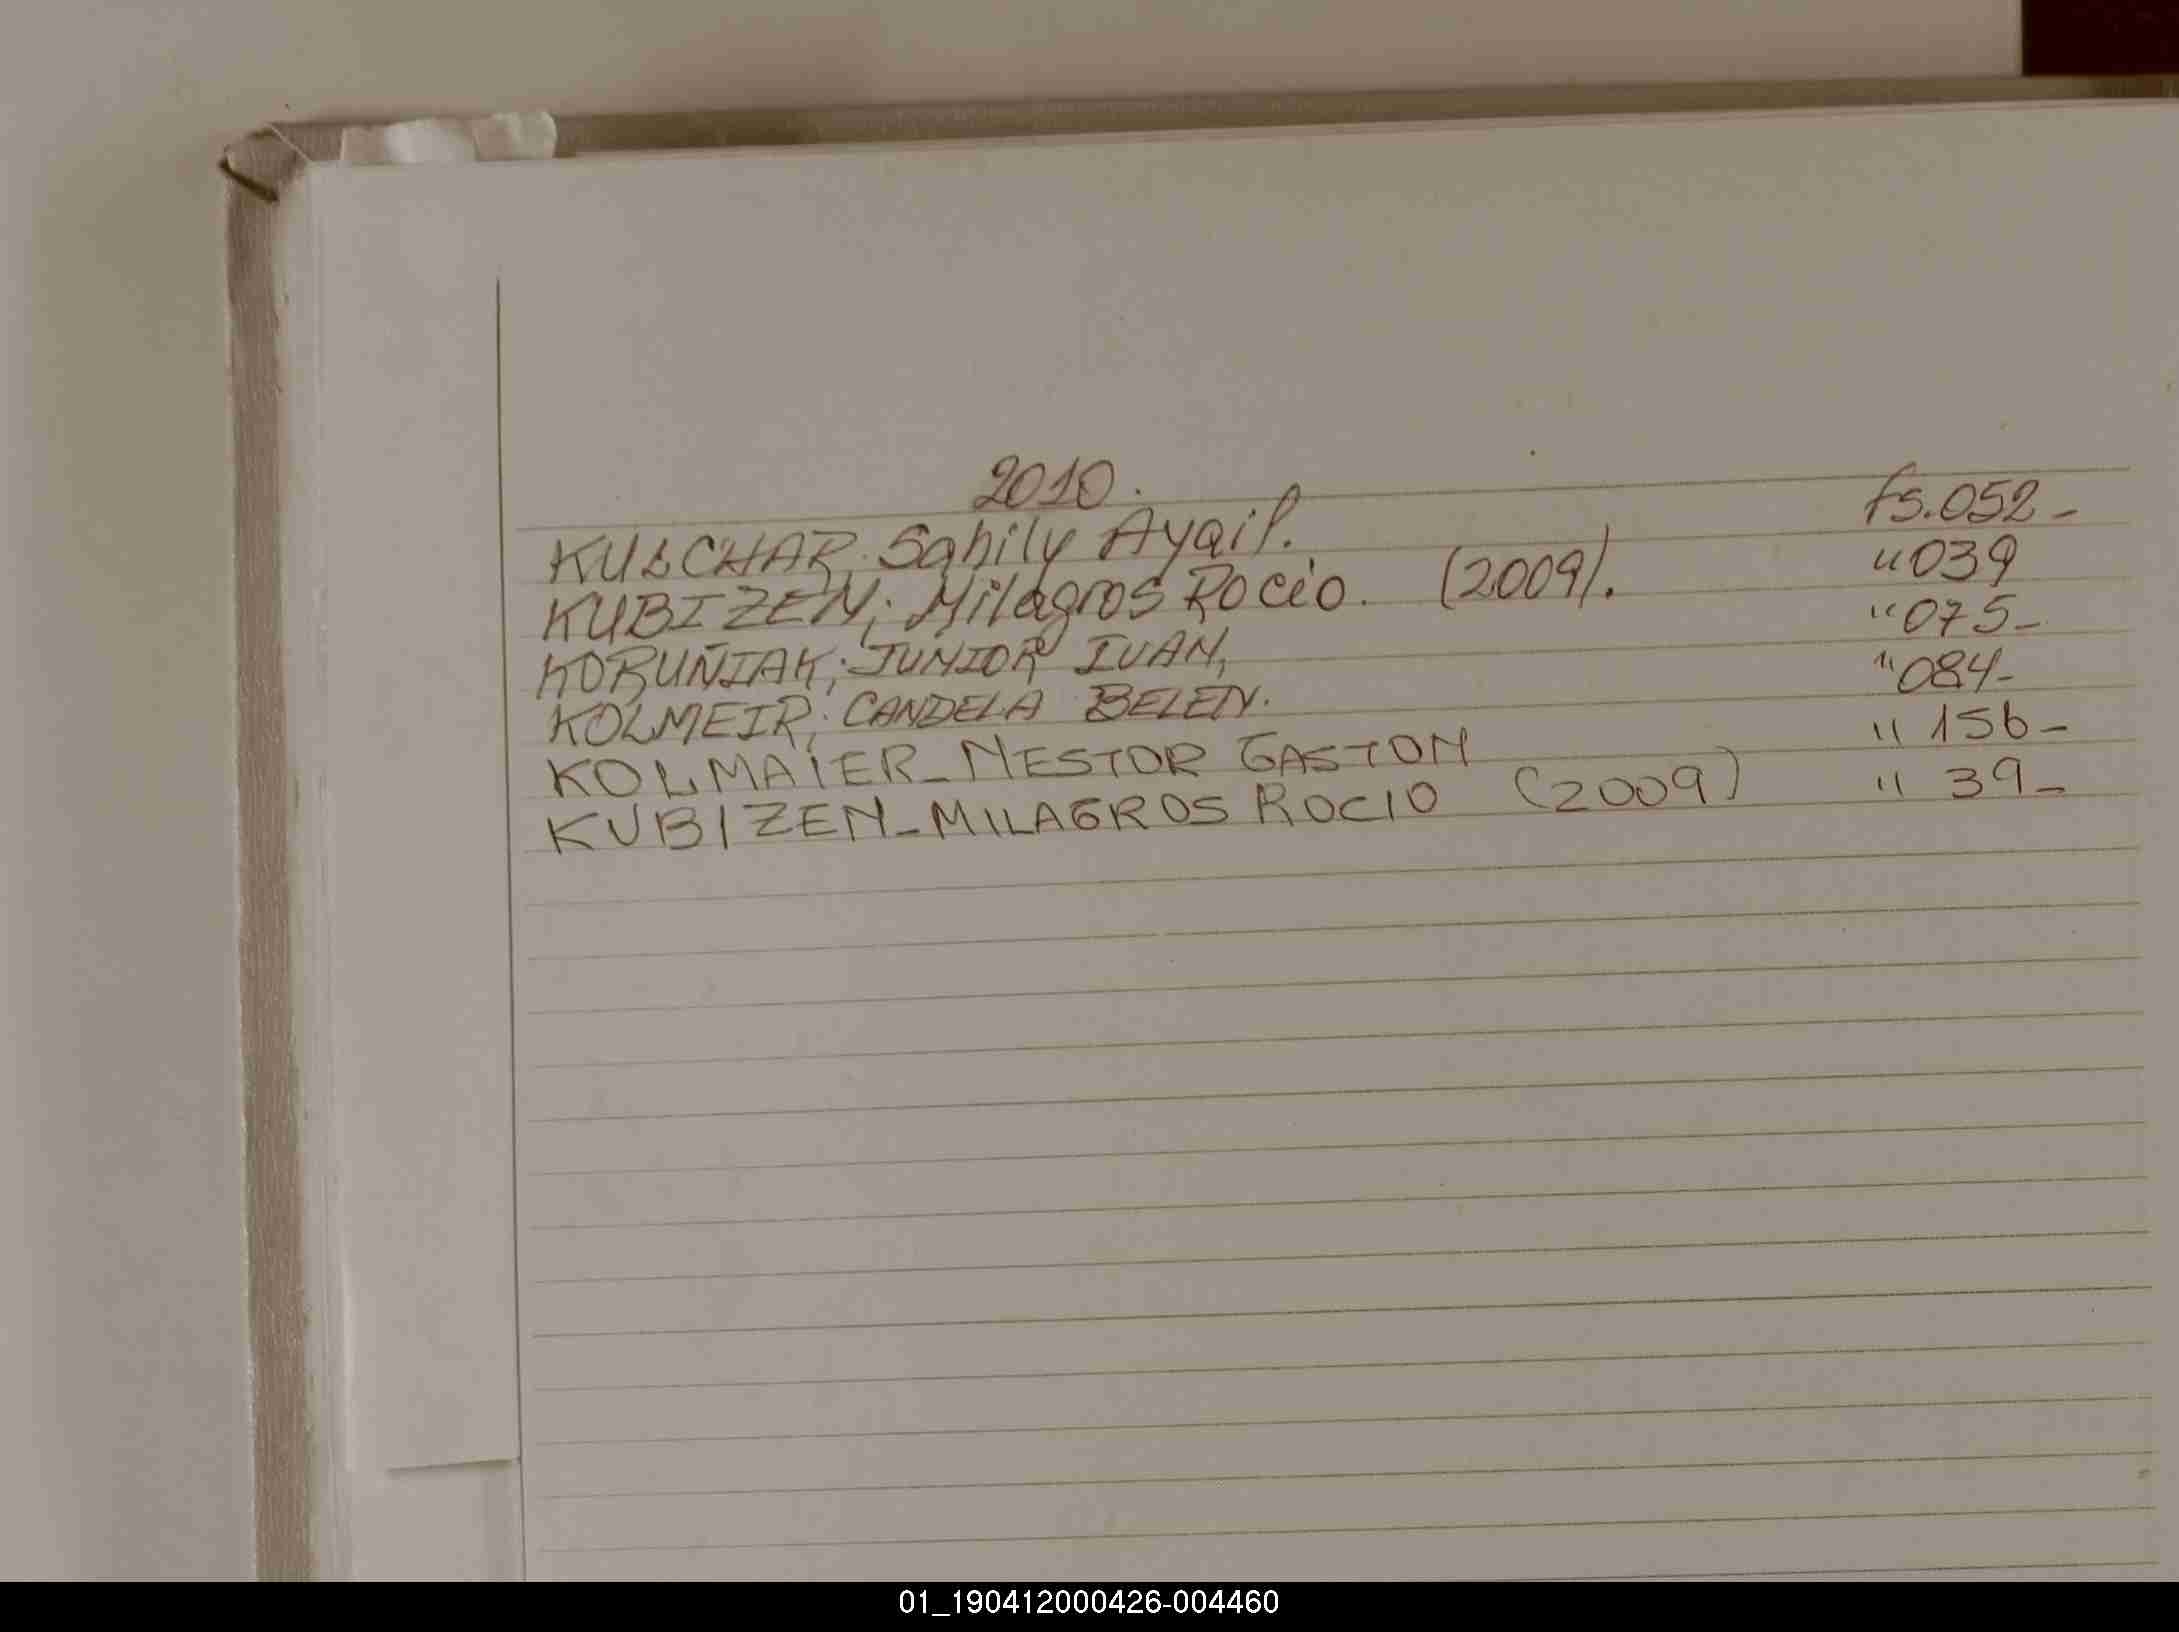 2010.
KULCHAR; Sahily Ayail. fs.052-
KUBIZEN; Milagros Rocio. (2009). "039
KORUÑIAK; JUNIOR IVAN, "075-
KOLMEIR; CANDELA BELEN. "084-
KOLMAIER-NESTOR GASTON " 156-
KUBIZEN-MILAGROS ROCIO (2009) " 39-
01_190412000426-004460